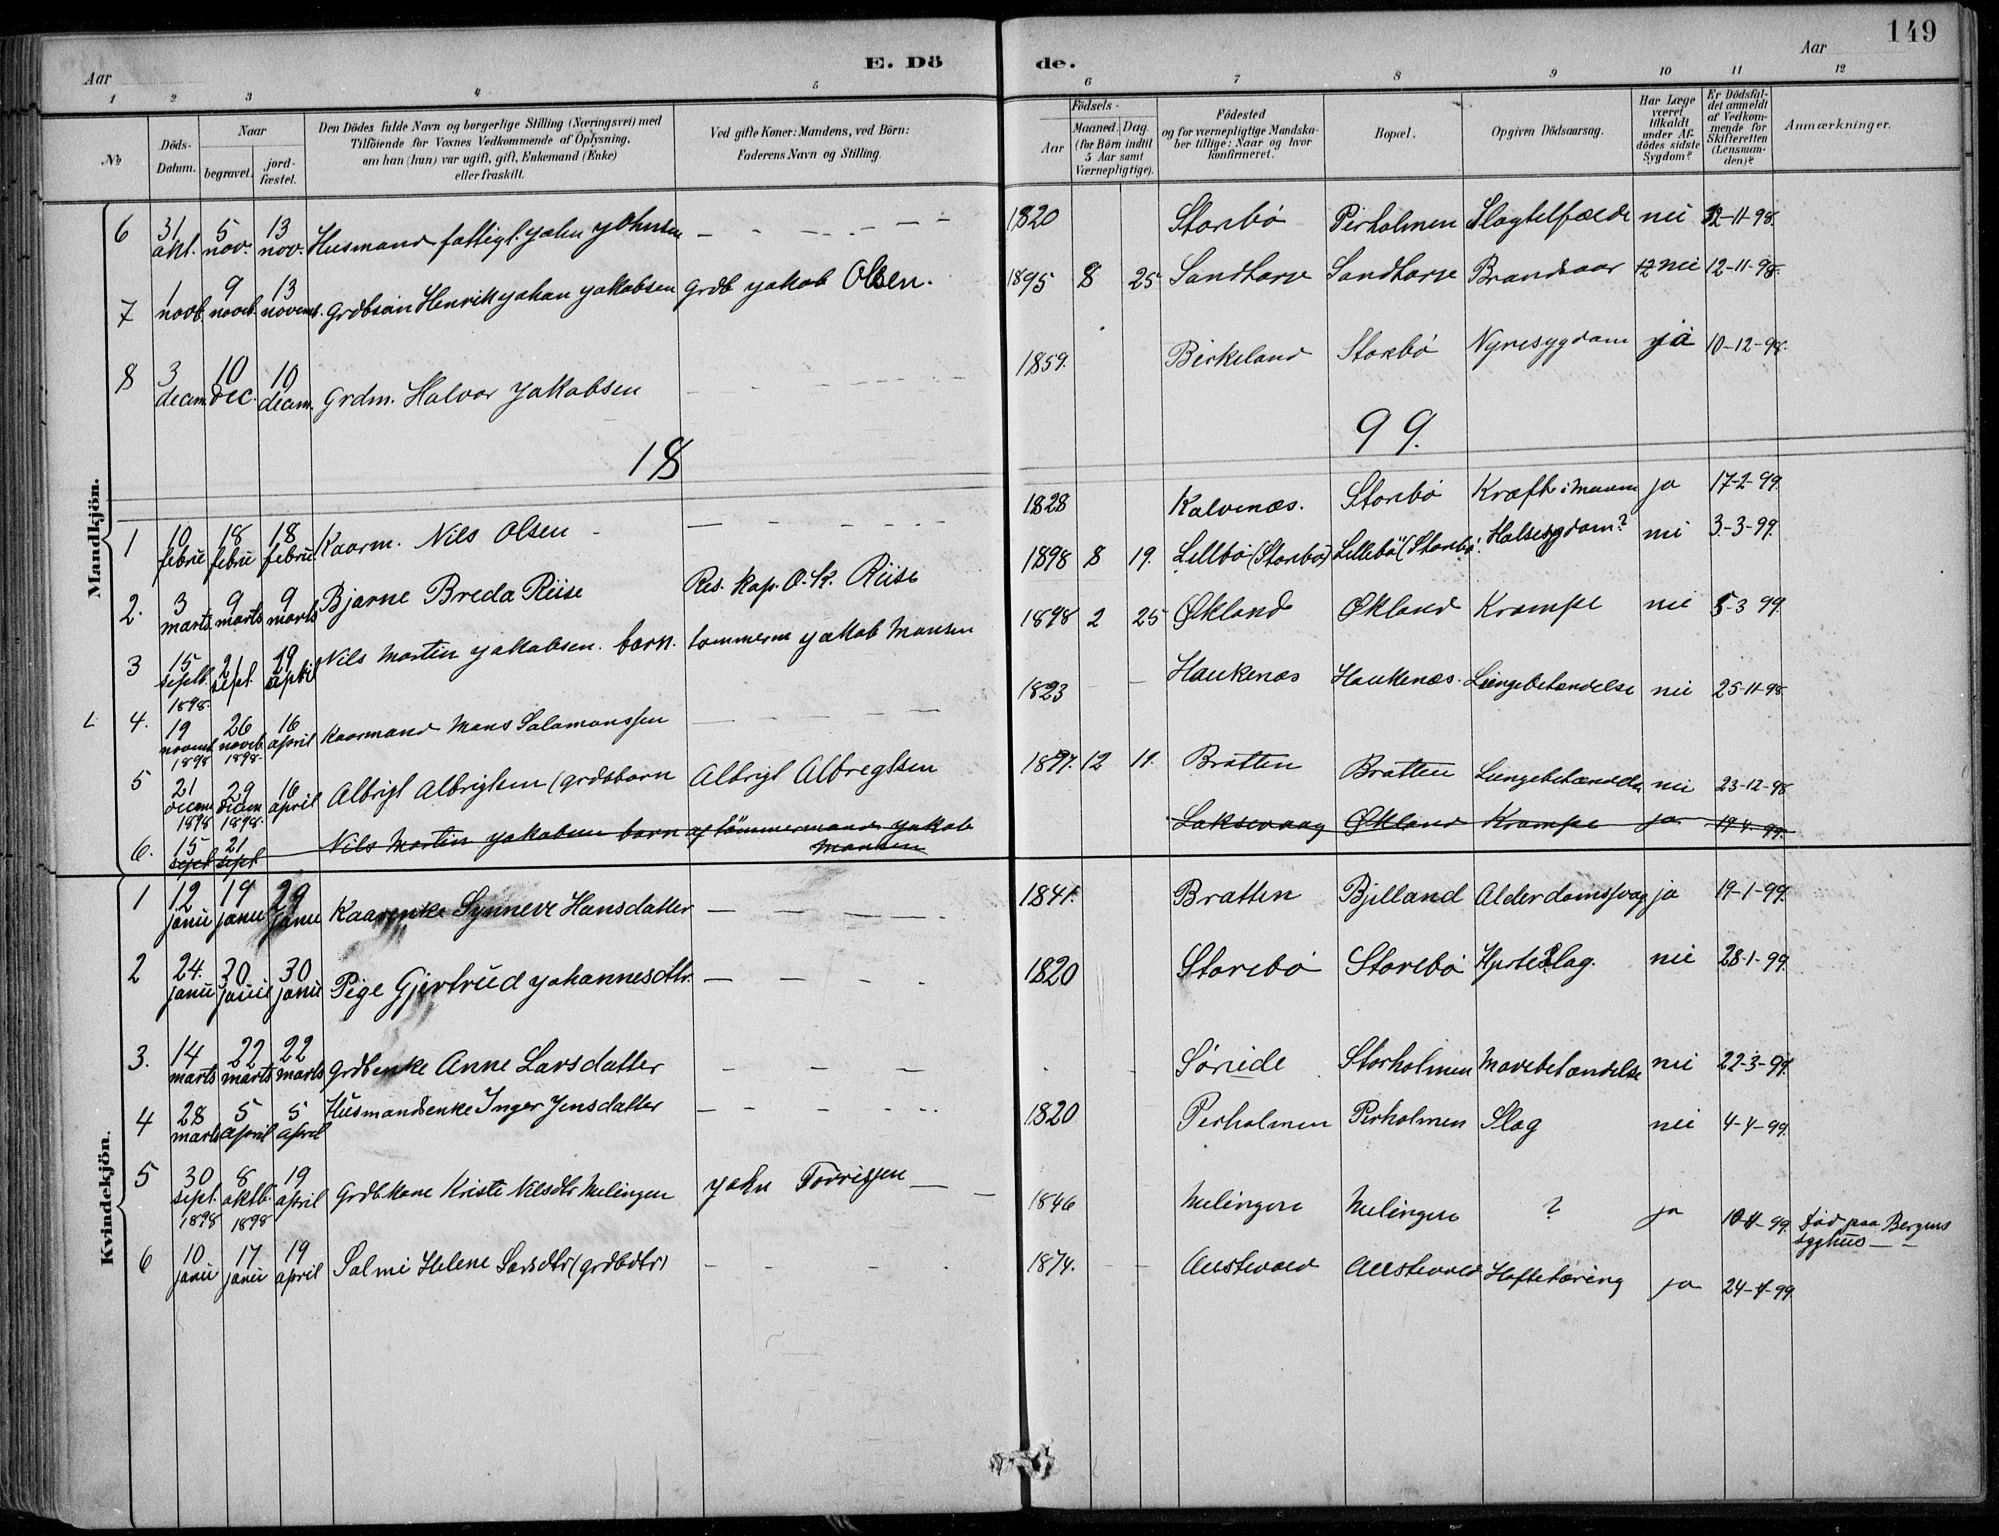 149
Aar
E. Dö
de.
Aar
1 2 3 4 5 6 7 8 9 10 11 12
No
Döds-Datum.
Naar
begravet.
jord-fæstet.
Den Dödes fulde Navn og borgerlige Stilling (Næringsvei) med
Tilföiende for Voxnes Vedkommende af Oplysning,
om han (hun) var ugift, gift, Enkemand (Enke)
eller fraskilt.
Ved gifte Koner: Mandens, ved Börn:
Faderens Navn og Stilling.
Födsels-
Aar
Maaned. Dag.
(for Börn indtil
5 Aar samt
Værnepligtige).
Födested
og for værnepligtige Mandska-
ber tillige: Naar og hvor
konfirmeret.
Bopæl.
Opgiven Dödsaarsag.
Har Læge
været
tilkaldt
under Af-
dödes sidste
Sygdom?
Er Dödsfal-
det anmeldt
af Vedkom-
mende for
Skifteretten
(Lensman-
den)?
Anmærkninger.
Mandkjön.
6 31 okt. 5 nov. 13 nov. Husmand fattigl. John Johnsen 1820 Storebø Perholmen Slagtilfælde nei 12-11-98.
7 1 novb. 9 noveb. 13 novemb. Grdbsøn Henrik Johan Jakobsen Grdb Jakob Olsen. 1895 8 25 Sandtorse Sandtorse Brandsaar nei 12-11-98.
8 3 decem. 10 Dec. 10 decem. Grdm. Halvor Jakobsen 1859. Birkeland Storebø Nyresygdom ja 10-12-98.
18 99.
1 10 febru 18 febru 18 febru Kaarm. Nils Olsen 1828 Kalvenæs. Storebø Kræft i Maven ja 17-2-99.
2. 3 marts 9 marts 9 marts Bjarne Breda Riise Res. Kap. O. K. Riise 1898 8 19. Lillbø (Storebø) Lillebø (Storebø. Halsesygdom? nei 3-3-99.
3 15 septb. 1898. 21 sept. 29 april Nils Martin Jakobsen. barn. tømmerm Jakob Monsen 1898 2 25 Økland Økland Krampe nei 5-3 99.
L 4. 19 novemb. 1898 26 noveb. 1898. 16 april Kaarmand Mons Salamonssen 1823 Haukenæs Haukenæs. Lungebetændelse nei 25-11-98.
5 21 decem 1898 29 Decem 1898. 16 april Albrigt Albrigtsen (grdbbarn Albrigt Albregtsen 1897. 12 11. Bratten Bratten Lungebetændelse nei 23-12-98
6. 15 sept 21 sept Nils Martin Jakobsen barn af tømmermand Jakob Monsen Laksevaag Økland Krampe ja 19-4-99.
Kvindekjön.
1 12 janu 19 janu 29 janu Kaarenke Synneve Hansdatter 1841. Bratten Bjelland Alderdomssvag ja 19-1-99.
2 24. janu 30 janu 30 janu Pige Gjertrud Johannesdtr. 1820 Storebø Storebø Hjerteslag. nei 28-1-99.
3. 14 marts 22 marts 22 marts Grdbenke Anne Larsdatter Søreide Storholmen Mavebetændelse nei 22-3-99.
4 28 marts 5 april 5 april Husmandsenke Inger Jensdatter 1820 Perholmen Perholmen Slag nei 4-4-99.
5 30 sept. 1898 8 oktb. 1898 19 april Grdb.kone Kristi Nilsdtr Melingen John Torrissen 1846 Melingen Melingen ? ja 10-4-99. død paa Bergens sygehus
6 10 janu 17 janu 19 april Salmi Helene Larsdtr (grdbdtr) 1874. Austevold Austevold Hoftetæring ja 24-4-99.